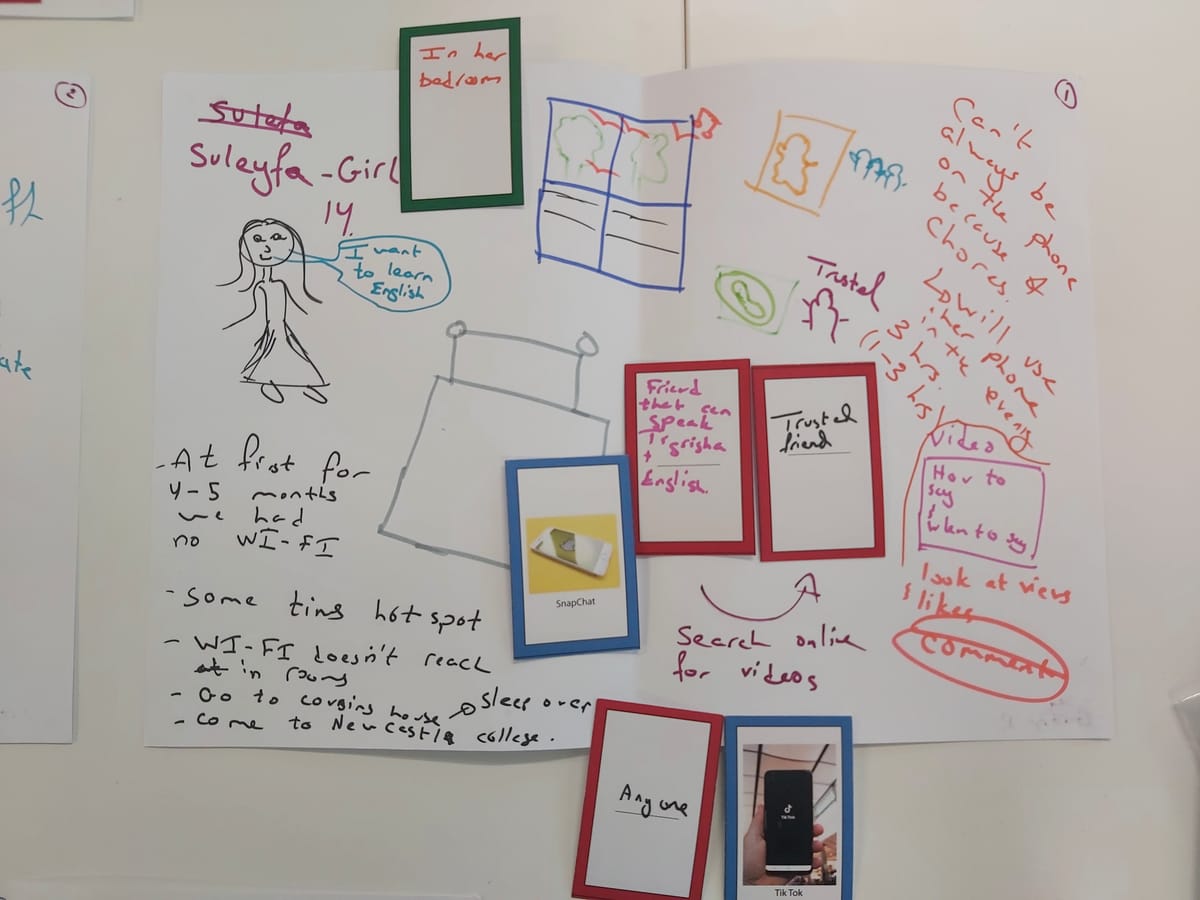 2
fl
ate
Sulefa
Suleyfa - Girl
14.
I want
to learn
English
In her
bedroom
- At first for
4-5 months
we had
no WI-FI
- Some tims hotspot
- WI-FI doesn't reach
at in rooms
- Go to cousins house → Sleep over
- Come to New Castle college.
SnapChat
Friend
that can
Speak
Tigrisha
+
English.
Trusted
friend
Trusted
Search online
for videos
Anyone
TikTok
Tik Tok
1
Can't
always be
on the phone
because
Chores.
↳ Will use
her phone
in the evenig
3 hrs.
(1-3 hrs)
Video
How to
say
&
when to say
look at views
& likes
comments